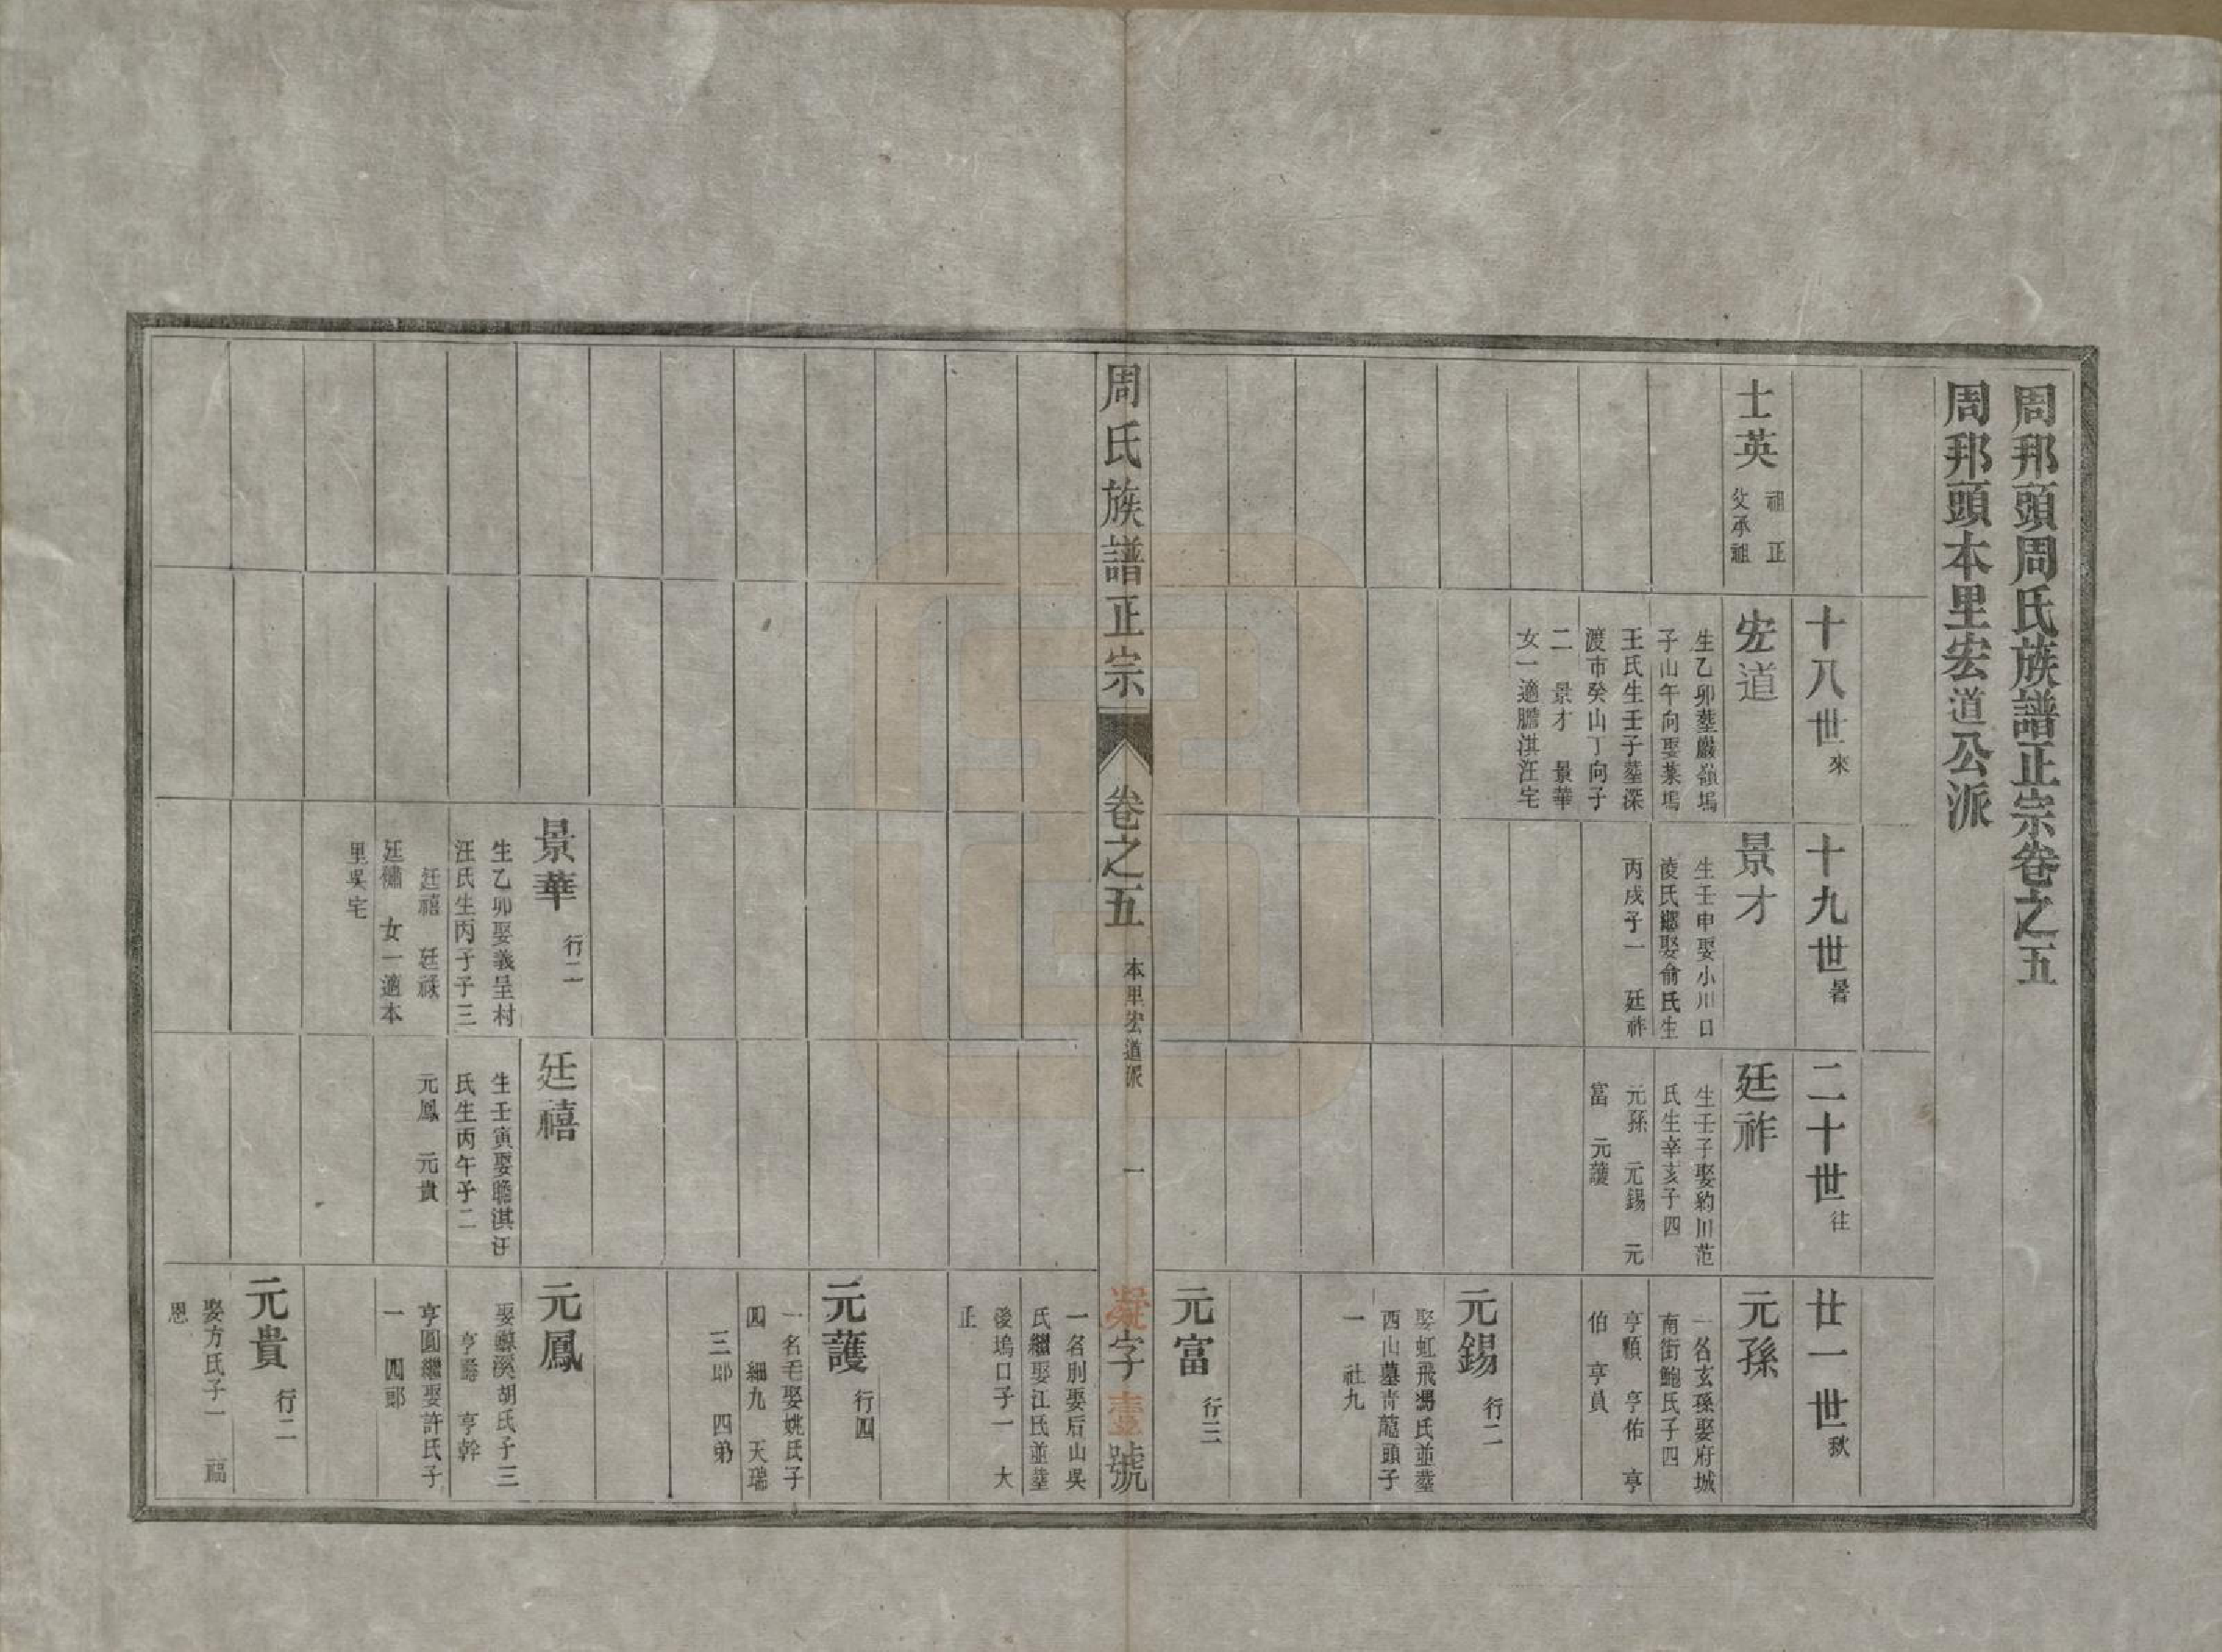 周邦頭周氏族譜正宗卷之五
周邦頭本里宏道公派
十八世來
十九世暑
二十世往
廿一世秋
士英
祖 正
父承祖
宏道
生乙卯塟嚴嶺塢
子山午向娶葉塢
王氏生壬子塟深
渡市癸山丁向子
二 景才 景華
女一適瞻淇汪宅
景才
生壬申娶小川口
淩氏繼娶俞氏生
丙戌子一 廷祚
廷祚
生壬子娶約川范
氏生辛亥子四
元孫 元錫 元
富 元護
元孫
一名玄孫娶府城
南街鮑氏子四
亨順 亨佑 亨
伯 亨員
元錫 行二
娶虹飛馮氏並塟
西山墓青龍頭子
一 社九
元富 行三
周氏族譜正宗
卷之五
本里宏道派
一
凝字壹號
一名刖娶后山吳
氏繼娶江氏並塟
後塢口子一 大
正
元護 行四
一名毛娶姚氏子
四 細九 天瑞
三郎 四弟
景華 行二
生乙卯娶義呈村
汪氏生丙子子三
廷禧 廷祿
廷 女一適本
里吳宅
廷禧
生壬寅娶瞻淇汪
氏生丙午子二
元鳳 元貴
元鳳
娶 溪胡氏子三
亨 亨幹
亨圓繼娶許氏子
一 四郎
元貴 行二
娶方氏子一 福
恩